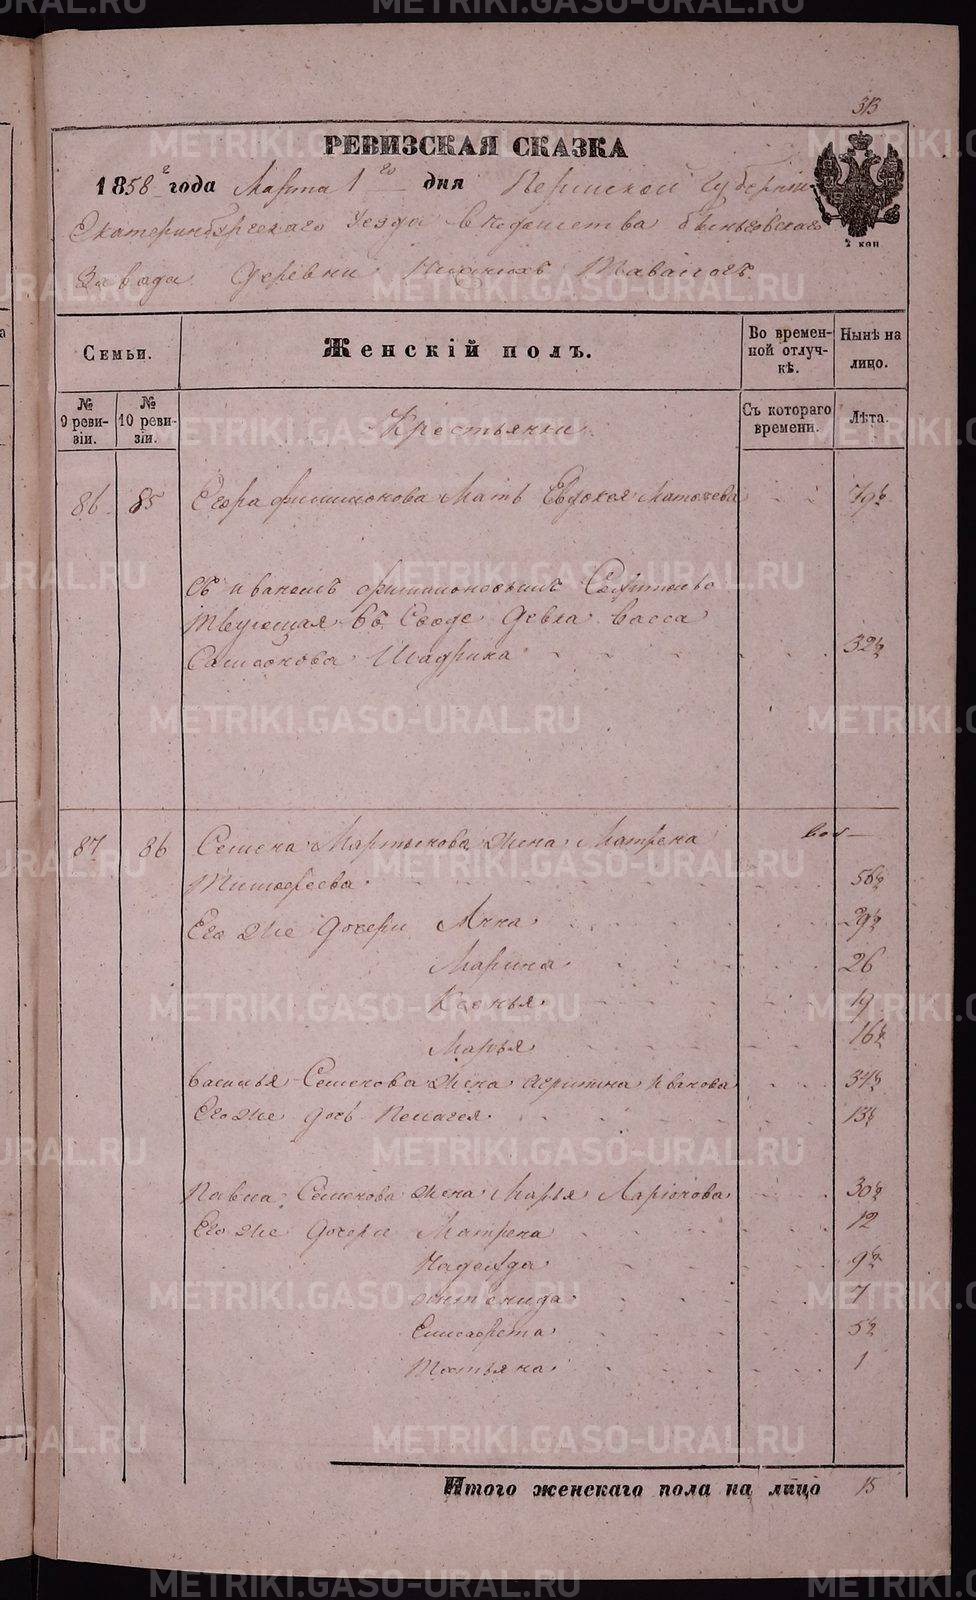 313
РЕВИЗСКАЯ СКАЗКА
1858 г года Марта 1 го дня Пермской Губернии
Екатеринбургскаго Уезда Ведомства Быньговскаго
Завода Деревни Нижнихъ Тавологъ.
2 коп
Семьи.
Женскій полъ.
Во времен-
ной отлуч-
кѣ.
Нынѣ на
лицо.
№
9 реви-
зіи.
№
10 реви-
зіи.
Съ котораго
времени.
Лѣта.
Крестьянки
86 85 Егора Филимонова Мать Евдокея Матвеева 79½
Съ Иваномъ Филимоновымъ
въ Сводѣ Девка Васса
Самсонова Шадрина 32½
87 86 Семена Мартынова жена Матрена
Тимофеева 56½
Его же дочери Анна 29½
Марина 26
Ксенья 19
Марья 16½
Василья Семенова жена Иванова 34½
Его же дочь Пелагея 13½
Павла Семенова жена Марья Ларионова 30½
Его же дочери Матрена 12
Надежда 9½
7
Елисавета 5½
Татьяна 1
Итого женскаго пола на лицо 15
METRIKI.GASO-URAL.RU